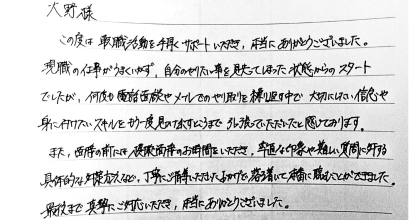 大野様
この度は 転職活動を手厚くサポートいただき、本当にありがとうございました。
現職の仕事がうまくいかず、自分のやりたい事を見失ってしまった状態からのスタート
でしたが、何度も電話面談やメールでのやり取りを繰り返す中で 大切にしたい信念や
身に付けたいスキルをもう一度見つめ直すところまで引っ張っていただいたと感じております。
また、面接の前には模擬面接のお時間をいただき、率直な印象や難しい質問に対する
具体的な対応方法など、丁寧にご指導いただいたおかげで、落ち着いて本番に臨むことができました。
最後まで真摯にご対応いただき、本当にありがとうございました。